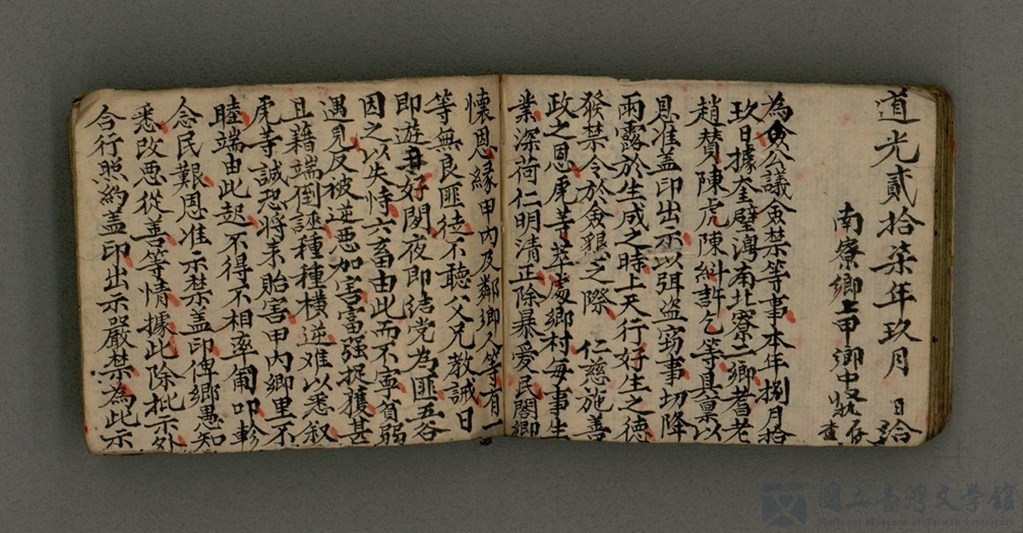 道光貳拾柒年玖月 日給
南寮鄉上甲鄉中収存查
為僉公議僉禁等事本年捌月拾
玖日據奎壁灣南北寮二鄉耆老
趙贊陳虎陳糾許乞等具稟以
恩准盖印出示以弭盜窃事切降
雨露於生成之時上天行好生之德
發禁令於僉艱之際 仁慈施善
政之恩虎等萃處鄉村每事生
業深荷仁明清正除暴爱民閤鄉
懷恩緣甲內及鄰鄉人等有一
等無良匪徒不聽父兄教誡日
即遊 好閑夜即結党為匪五谷
因之以失恃六畜由此而不寧貧弱
遇見反被逆惡加害富强捉獲甚
且藉端倒誣種種橫逆难以悉叙
虎等誠恐將来貽害甲內鄉里不
睦端由此起不得不相率匍叩軫
念民艱恩准示禁盖印俾鄉愚知
悉改恶從善等情據此除批示外
合行照約盖印出示嚴禁為此示
國立臺灣文學館
National Museum of Taiwan Literature